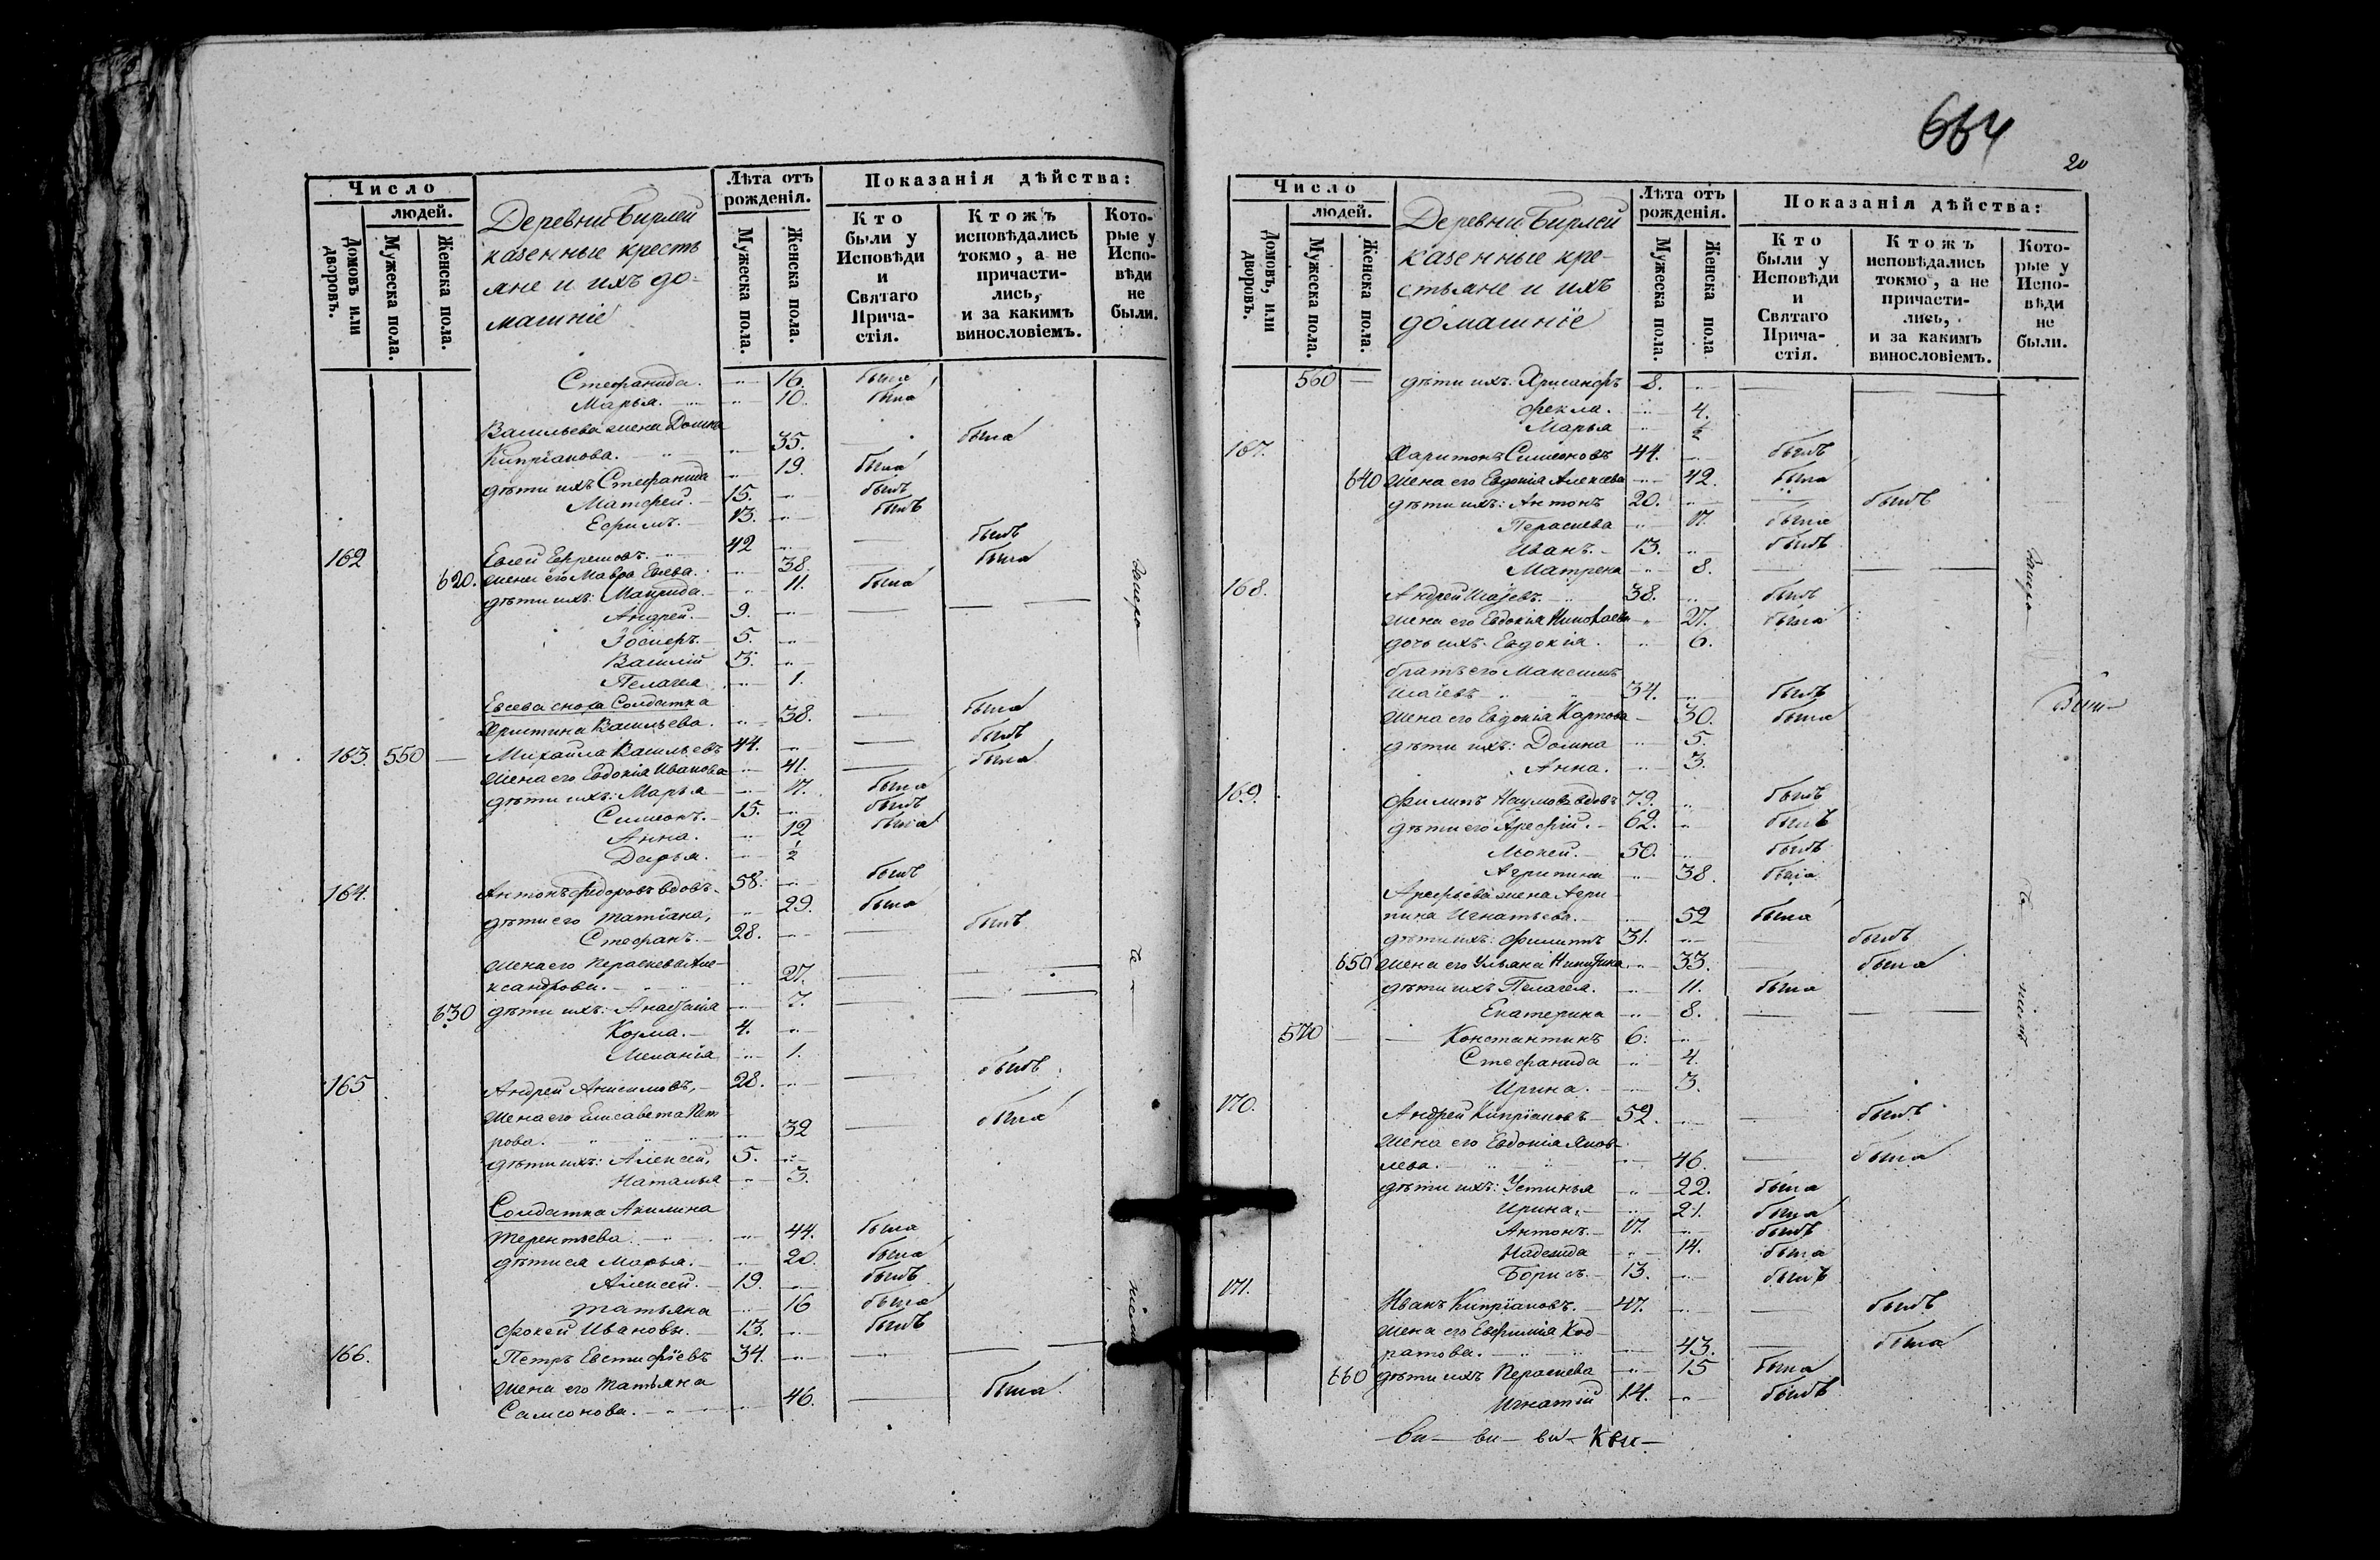 Число
людей.
Домовъ или дворовъ.
Мужеска пола.
Женска пола.
Деревни Бирлей
казенные кресть
яне и ихъ до=
машніе
Лѣта отъ рожденія.
Мужеска пола.
Женска пола.
Показанія дѣйства:
Кто были у Исповѣди и Святаго Прича-стія.
Ктожъ исповѣдались токмо, а не причасти-лись, и за какимъ винословіемъ.
Кото-рые у Испо-вѣди не были.
Стефанида. 16. была
Марья. 10. была
Васильева жена Домна
Кипріанова. 35. была
дѣти ихъ Стефанида 19. была
Матфей. 15. былъ
Ефимъ. 13. былъ
162 Евсей Ефремовъ. 42 былъ
620. жена его Мавра Евсева. 38. была
дѣти ихъ: 11. была
Андрей. 9.
Іосифъ. 5.
Василій 3.
Пелагея 1.
Евсева сноха Солдатка
Христина Васильева. 38. была
163. 550 Михайла Васильевъ 44. былъ
жена его Евдокія Иванова 41. была
дѣти ихъ: Марья 17. была
Симеонъ. 15. былъ
Анна. 12 была
Дарья. ½
164. Антонъ Федоровъ вдовъ. 58. былъ
дѣти его Татіана, 29. была
Стефанъ. 28. былъ
жена его Параскева Але-
ксандрова. 27.
630 дѣти ихъ: Анастасія 7.
Козма. 4.
Меланія 1.
165 Андрей Анисимовъ, 28. былъ
жена его Елисавета Пет
рова. 32 была
дѣти ихъ: Алексей, 5.
Наталья 3.
Солдатка Акилина
Терентьева. 44. была
дѣти ея Марья. 20. была
Алексей. 19. былъ
Татьяна 16 была
Фокей Ивановъ. 13. былъ
166. Петръ Евстифіевъ 34.
жена его Татьяна
Самсонова. 46. была
664
20
Число
людей.
Домовъ, или дворовъ.
Мужеска пола.
Женска пола.
Деревни Бирлей
казенные кре-
стьяне и ихъ
домашніе
Лѣта отъ рожденія.
Мужеска пола.
Женска пола
Показанія дѣйства:
Кто были у Исповѣди и Святаго Прича-стія.
Ктожъ исповѣдались токмо, а не причасти-лись, и за какимъ винословіемъ.
Кото-рые у Испо-вѣди не были.
560 дѣти ихъ: Хрисанфъ 8.
Фекла. 4.
Марья ½
167. Харитонъ Симеоновъ 44. былъ
640 жена его Евдокія Алексева 42. была
дѣти ихъ: Антонъ 20. былъ
Параскева 17. была
Иванъ. 13. былъ
Матрена 8.
168. Андрей Исаіевъ. 38. былъ
жена его Евдокія Николаева 27. была
дочь ихъ Евдокія. 6.
братъ его Максимъ
Исаіевъ 34. былъ
жена его Евдокія Карпова 30. была
дѣти ихъ: Домна 5.
Анна. 3.
169. Филипъ Наумовъ вдовъ 79. былъ
дѣти его Арефій. 62. былъ
Мокей. 50. былъ
Агрипина 38. была
Арефьева жена Агри-
пина Игнатьева. 52 была
дѣти ихъ: Филиппъ 31. былъ
650 жена его Ульяна Никитина. 33. была
дѣти ихъ Пелагея. 11. была
Екатерина 8.
570 Константинъ 6.
Стефанида 4.
Ирина. 3.
170. Андрей Кипріановъ 52. былъ
жена его Евдокія Яков-
лева. 46. была
дѣти ихъ: Устинья 22. была
Ирина, 21. была
Антонъ. 17. былъ
Надежда 14. была
Борисъ. 13. былъ
171. Иванъ Кипріановъ. 47. былъ
жена его Евфимія Код-
ратова. 43. была
660 дѣти ихъ Параскева 15 была
Игнатій 14. былъ